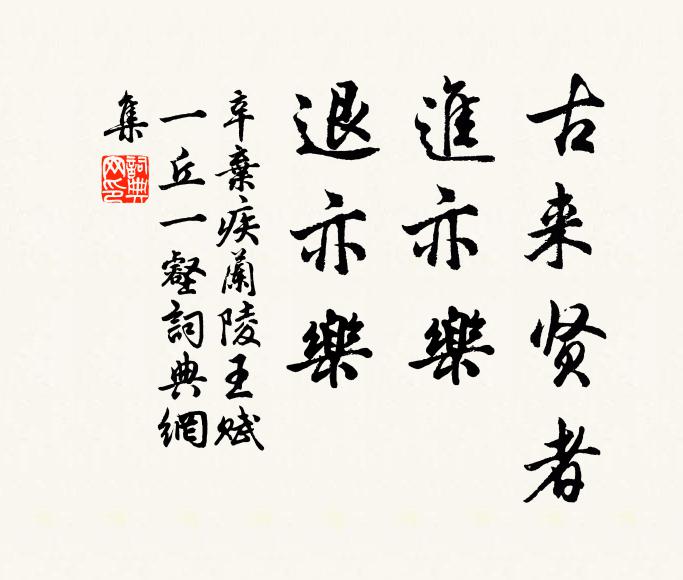 古来贤者
進亦樂
退亦樂
辛棄疾蘭陵王賦
一丘一壑詞典網
集
詞典
网印